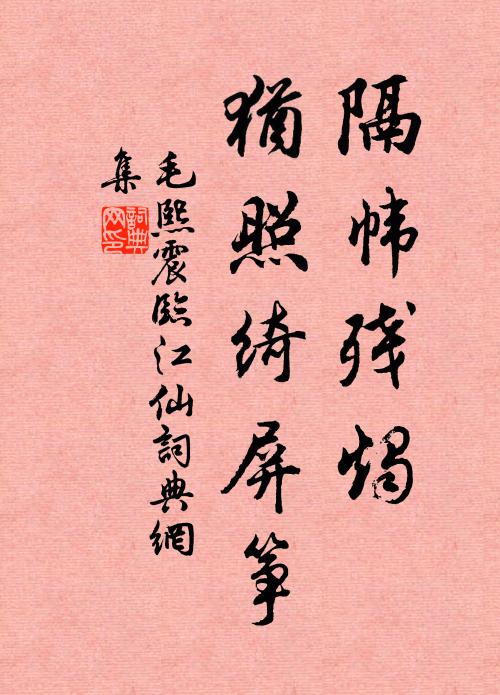 隔帏残烛
犹照绮屏筝
毛熙震临江仙词典网
集
词典网印